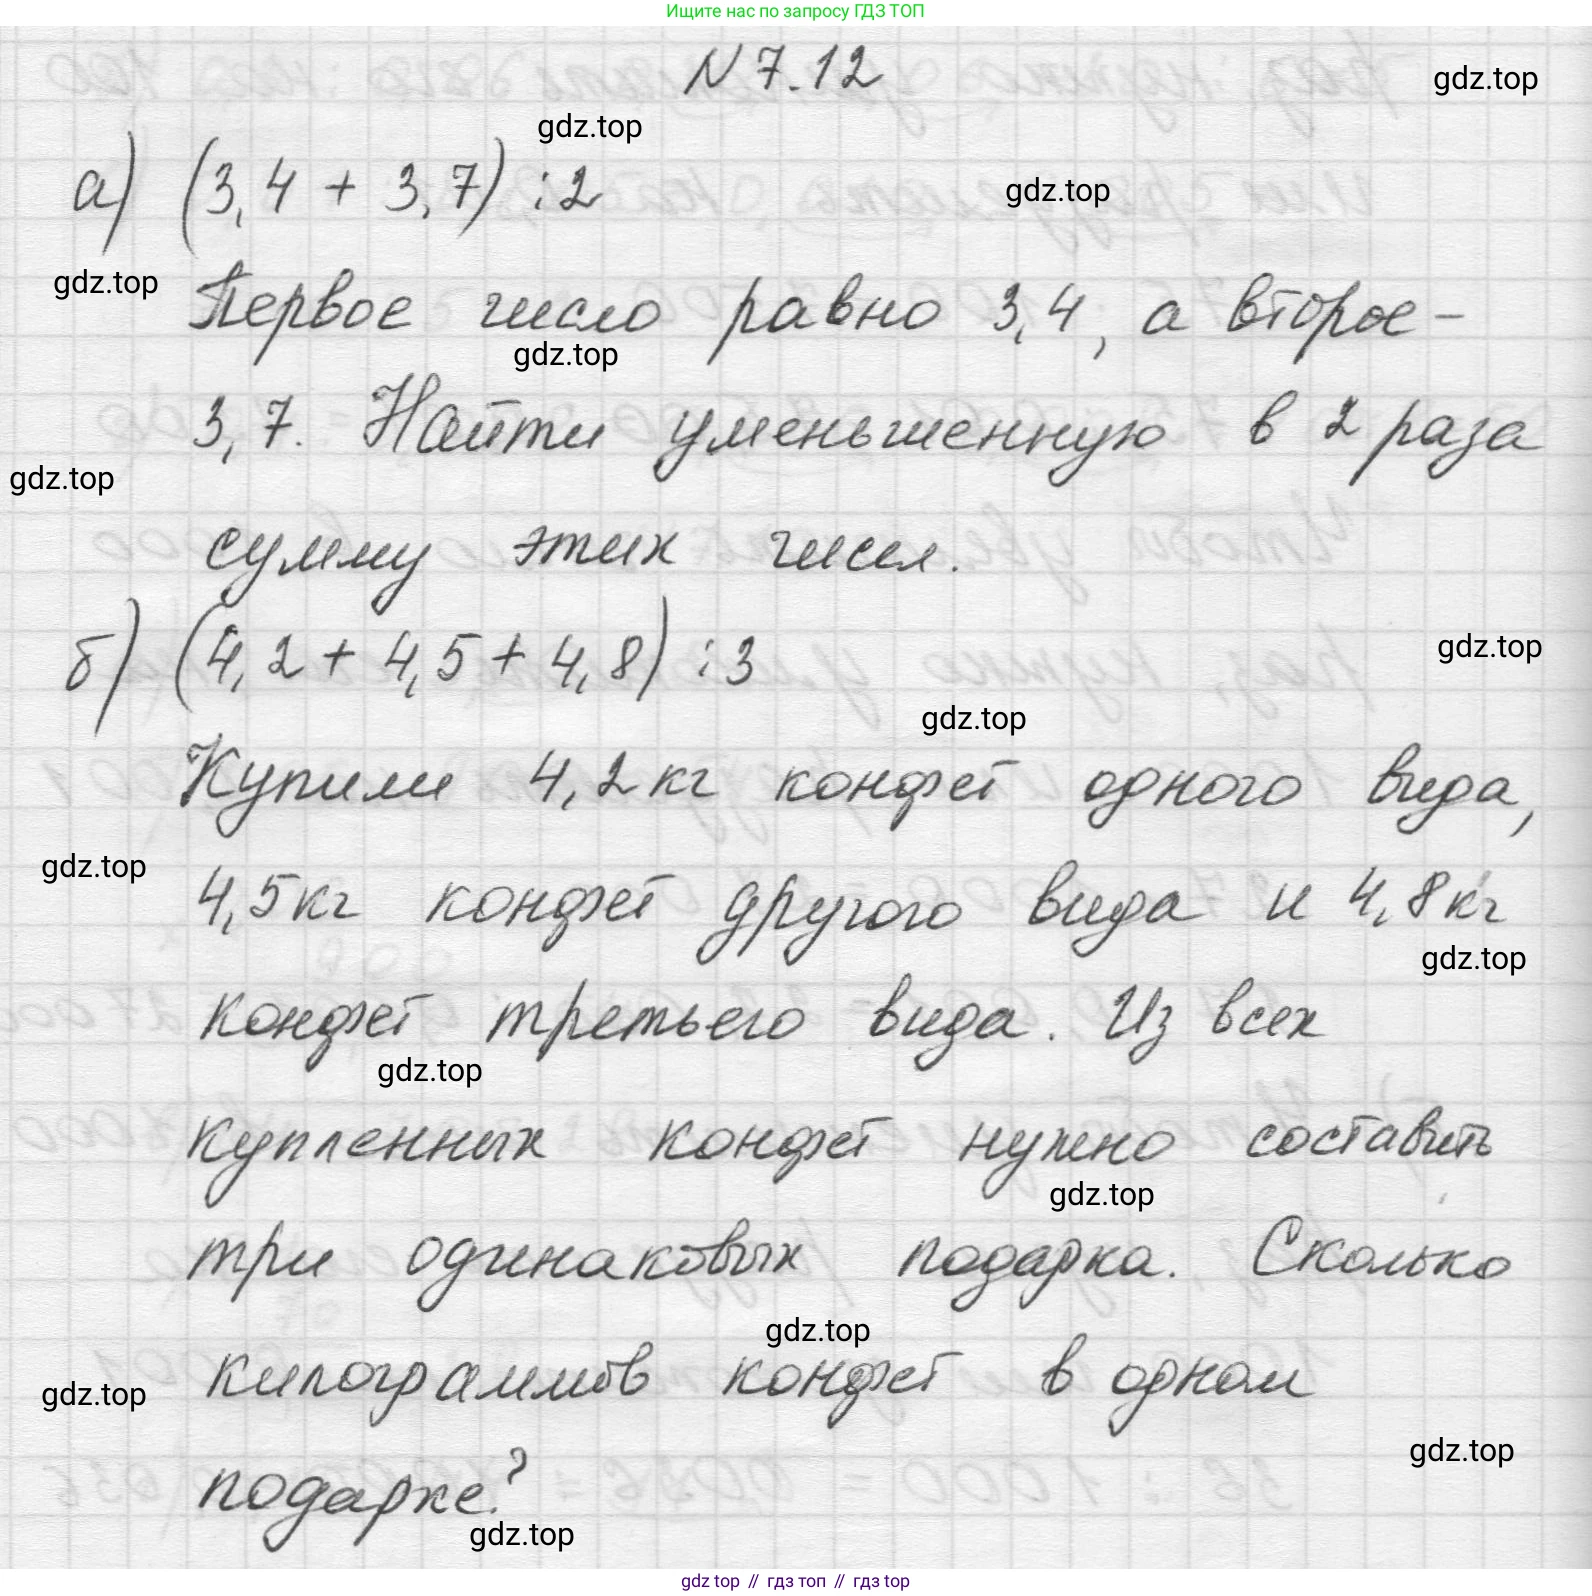 Ищите нас по запросу ГДЗ ТОП
N 7.12
gdz.top
gdz.top
а) (3,4 + 3,7) : 2
gdz.top
gdz.top
Первое число равно 3,4, а второе -
gdz.top
3,7. Найти уменьшенную в 2 раза
gdz.top
сумму этих чисел.
б) (4,2 + 4,5 + 4,8) : 3
gdz.top
gdz.top
Купили 4,2 кг конфет одного вида,
gdz.top
4,5 кг конфет другого вида и 4,8 кг
gdz.top
конфет третьего вида. Из всех
gdz.top
купленных конфет нужно составить
gdz.top
три одинаковых подарка. Сколько
gdz.top
килограммов конфет в одном
gdz.top
gdz.top
подарке?
gdz.top
gdz top // гдз топ // гдз top